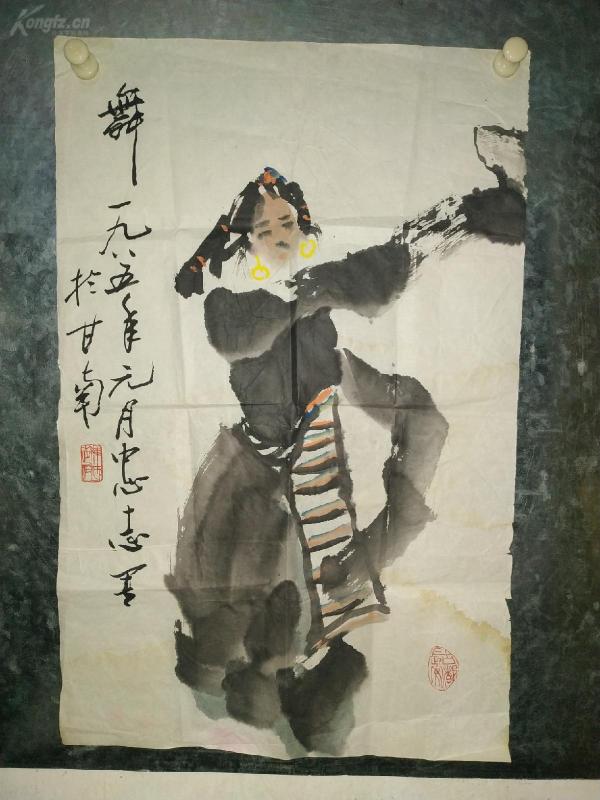 Kongfz.cn
舞
一九八五年元月忠志墨
於甘南